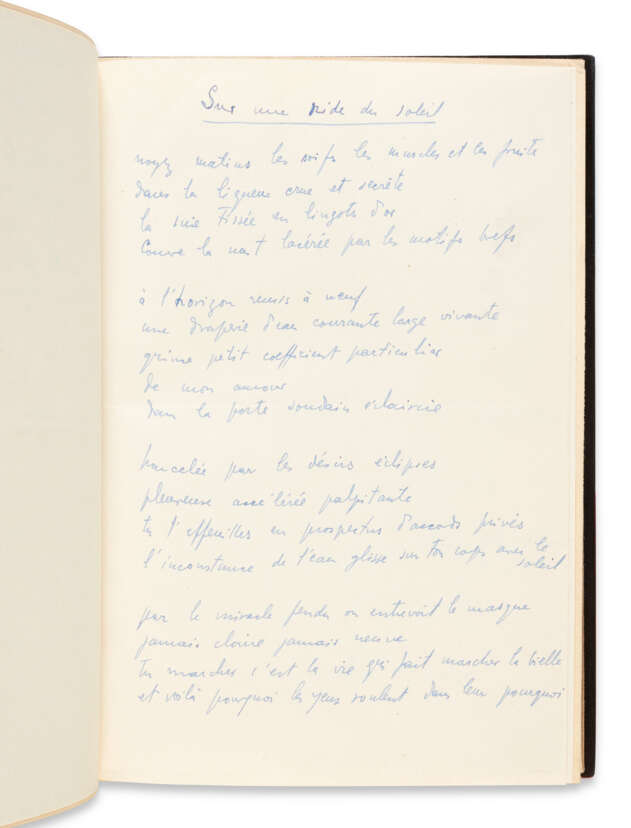 Sur une ride du soleil
noyez matins les soifs les muscles et les fruits
dans la liqueur crue et secrète
la suie tissée en lingots d'or
Couvre la nuit lacérée par les motifs brefs
à l'horizon remis à neuf
une draperie d'eau courante large vivante
grince petit coefficient particulier
de mon amour
dans la porte soudain éclaircie
harcelée par les désirs éclipses
pleureuse accélérée palpitante
tu t'effeuilles en prospectus d'accords privés
l'inconstance de l'eau glisse sur ton corps avec le soleil
par le miracle fendu on entrevoit le masque
jamais claire jamais neuve
tu marches c'est la vie qui fait marcher la bielle
et voilà pourquoi les yeux roulent dans leur pourquoi